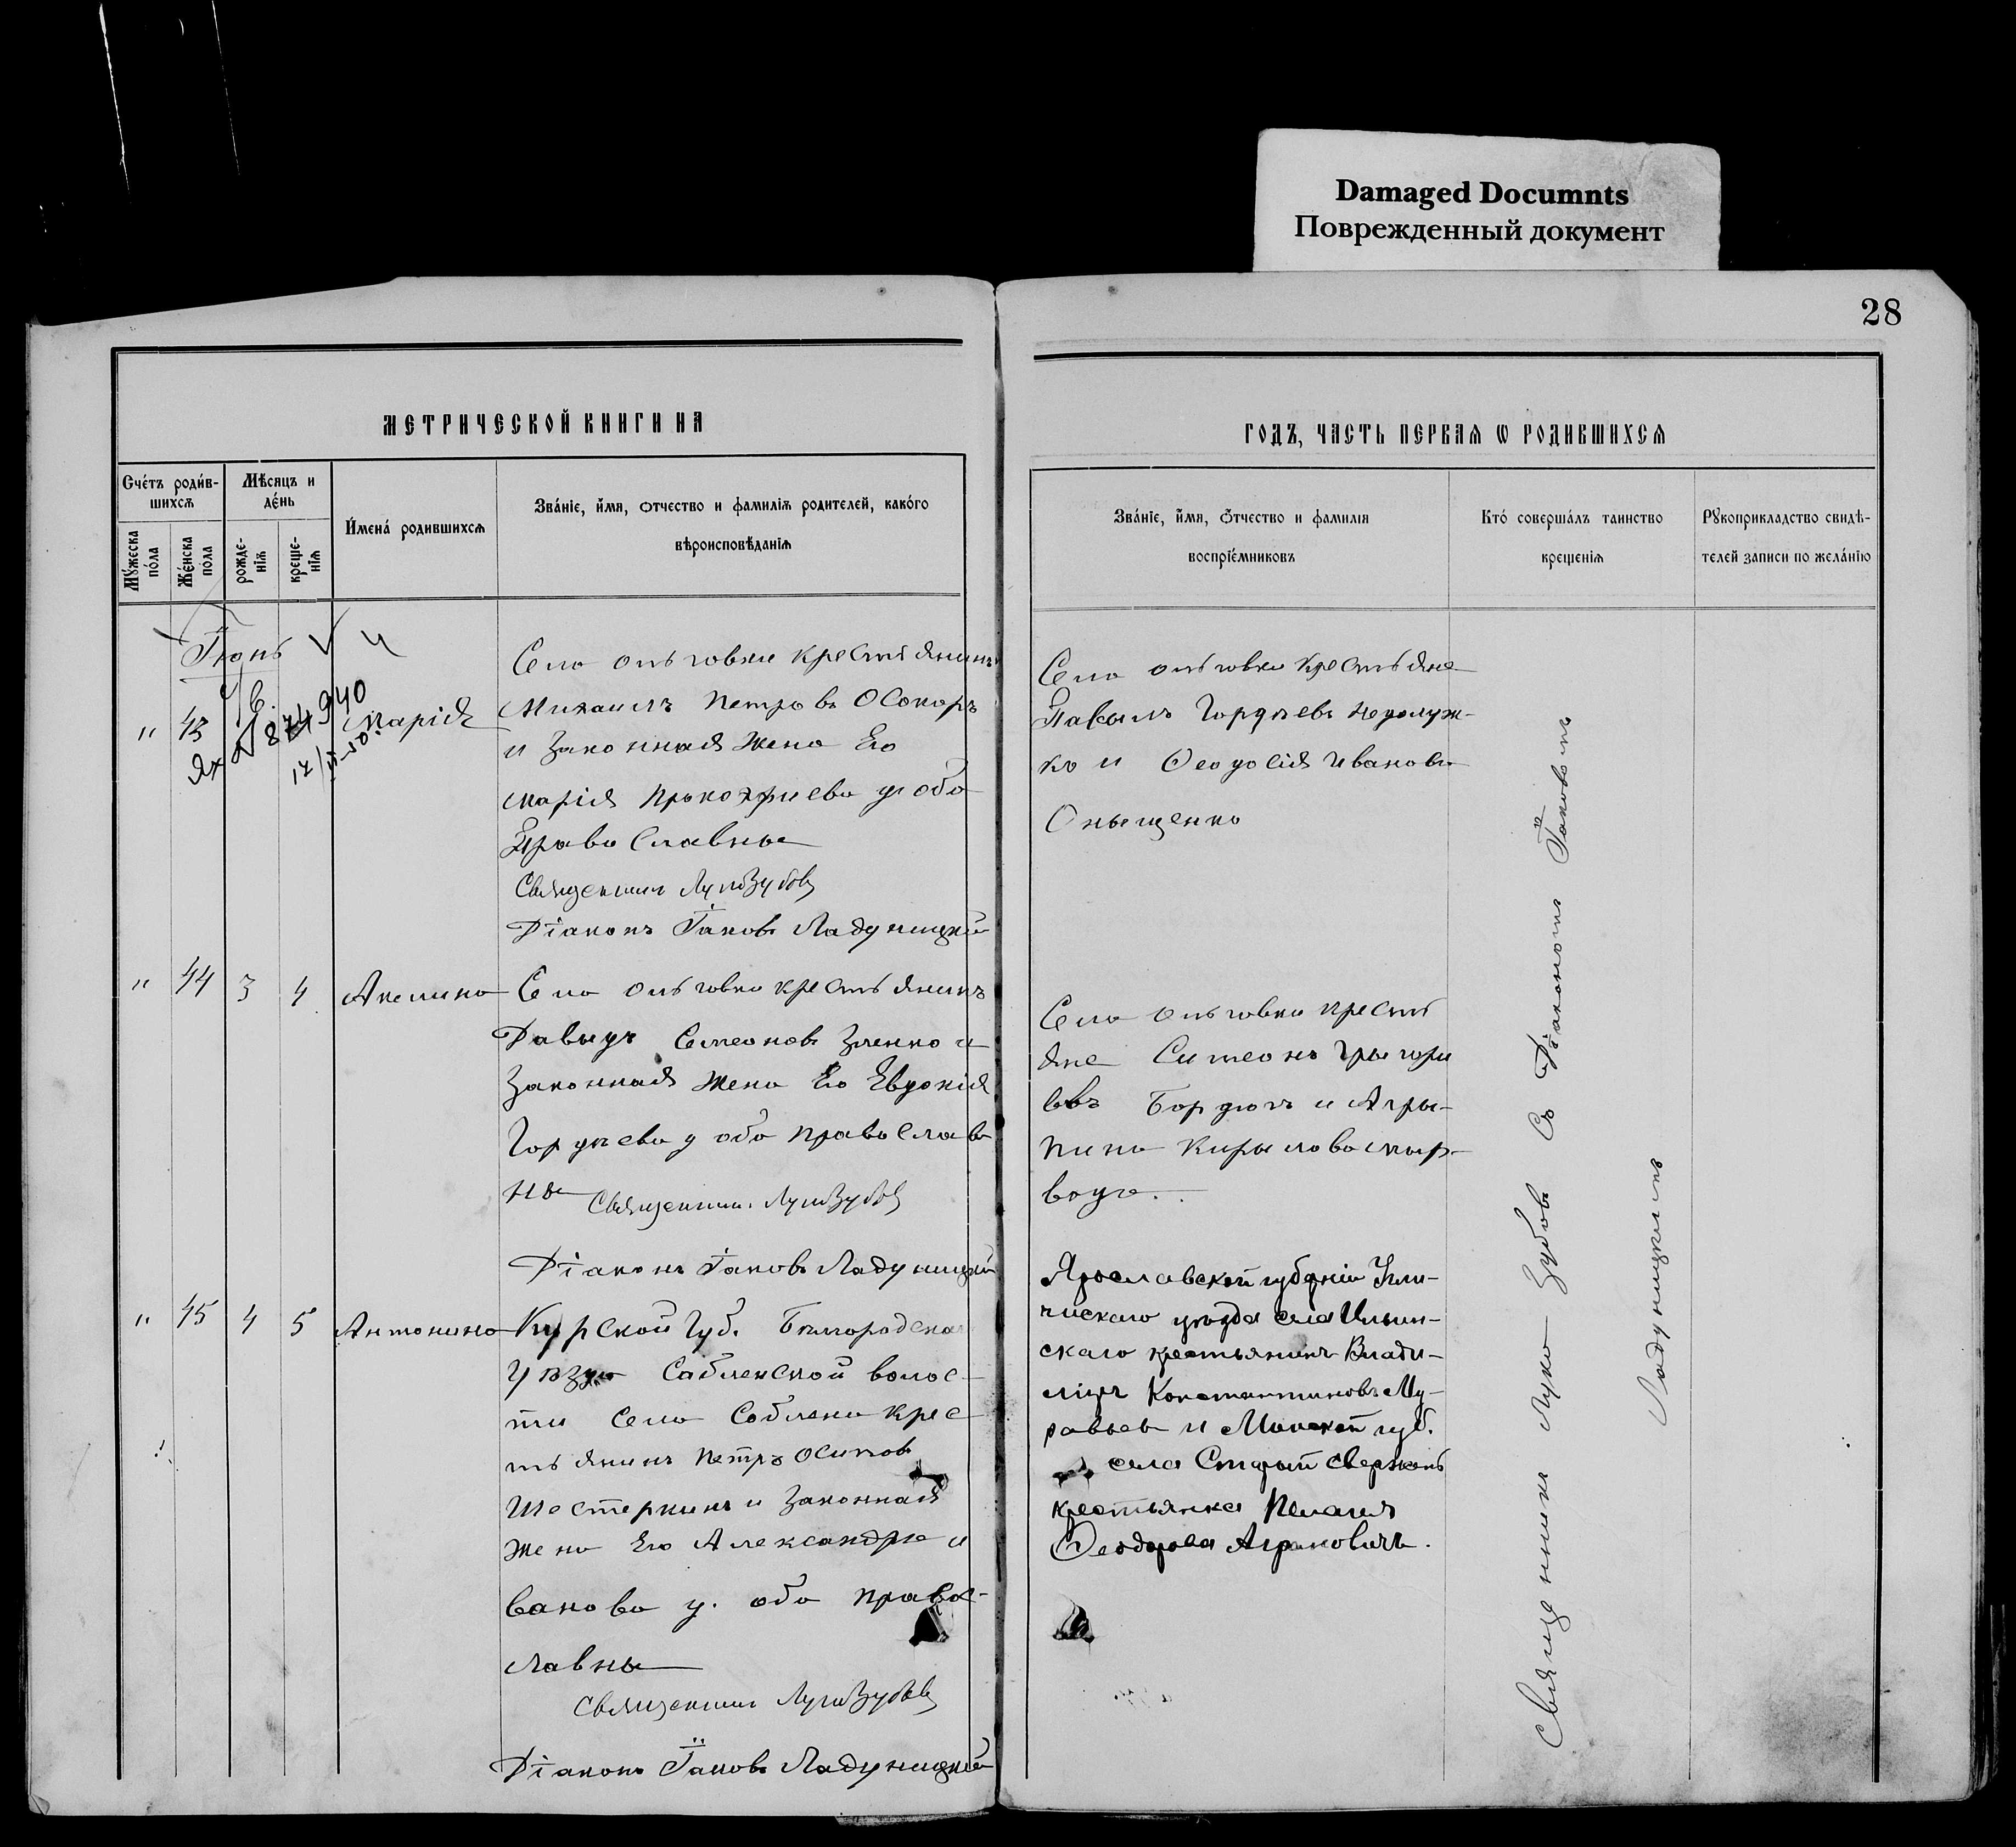 Damaged Documnts
Поврежденный документ
28
МЕТРИЧЕСКОЙ КНИГИ НА
ГОДЪ, ЧАСТЬ ПЕРВАЯ Ѡ РОДИВШИХСЯ
Счетъ родив-
шихся
Мужеска
пола
Женска
пола
Мѣсяцъ и
день
рожде-
нія
креще-
нія
Имена родившихся
Званіе, имя, отчество и фамилія родителей, какого
вѣроисповѣданія
Званіе, имя, отчество и фамилія
воспріемниковъ
Кто совершалъ таинство
крещенія
Рукоприкладство свидѣ-
телей записи по желанію
Іюнь
" 43
Марія
Села Ольговки крестьянинъ
Михаилъ Петровъ
и законная жена Его
Марія Прокофиева оба
Православные
Священникъ Лука Зубовъ
Діаконъ Іаковъ Ладуницкій
Села Ольговки крестьяне
Гордѣевъ
и Феодосія Иванова
Онищенко
" 44 3 4 Акелина
Села Ольговки крестьянинъ
Давыдъ Симеоновъ и
законная жена Его Евдокія
Гордѣева оба православ
ны
Священникъ Лука Зубовъ
Діаконъ Іаковъ Ладуницкій
Села Ольговки крестья
яне Симеонъ Григори
евъ и Агри-
пина Кирилова
" 45 4 5 Антонина
Курской Губ. Бѣлгородска
уѣзда волос-
ти Села крес
тьянинъ Петръ Осиповъ
Шестеркинъ и законная
жена Его Александра И
ванова оба правос-
лавны
Священникъ Лука Зубовъ
Діаконъ Іаковъ Ладуницкій
Ярославской губерніи Угли-
чискаго уѣзда села Ильин-
скаго крестьянинъ Влади-
міръ Константиновъ Му-
равьев и Минской губ.
села Старый Свержень
крестьянка Пелагия
Феодорова
Священникъ Лука Зубовъ Съ Діакономъ Іаковомъ
Ладуницкимъ